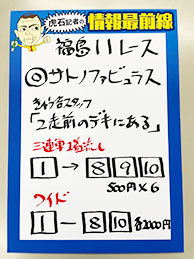 虎石記者の
情報最前線
福島11レース
◎サトノファビュラス
きゅう舎スタッフ
「2走前のデキにある」
三連単1着流し
1→8 9 10
500円×6
ワイド
1-8 10 各2000円